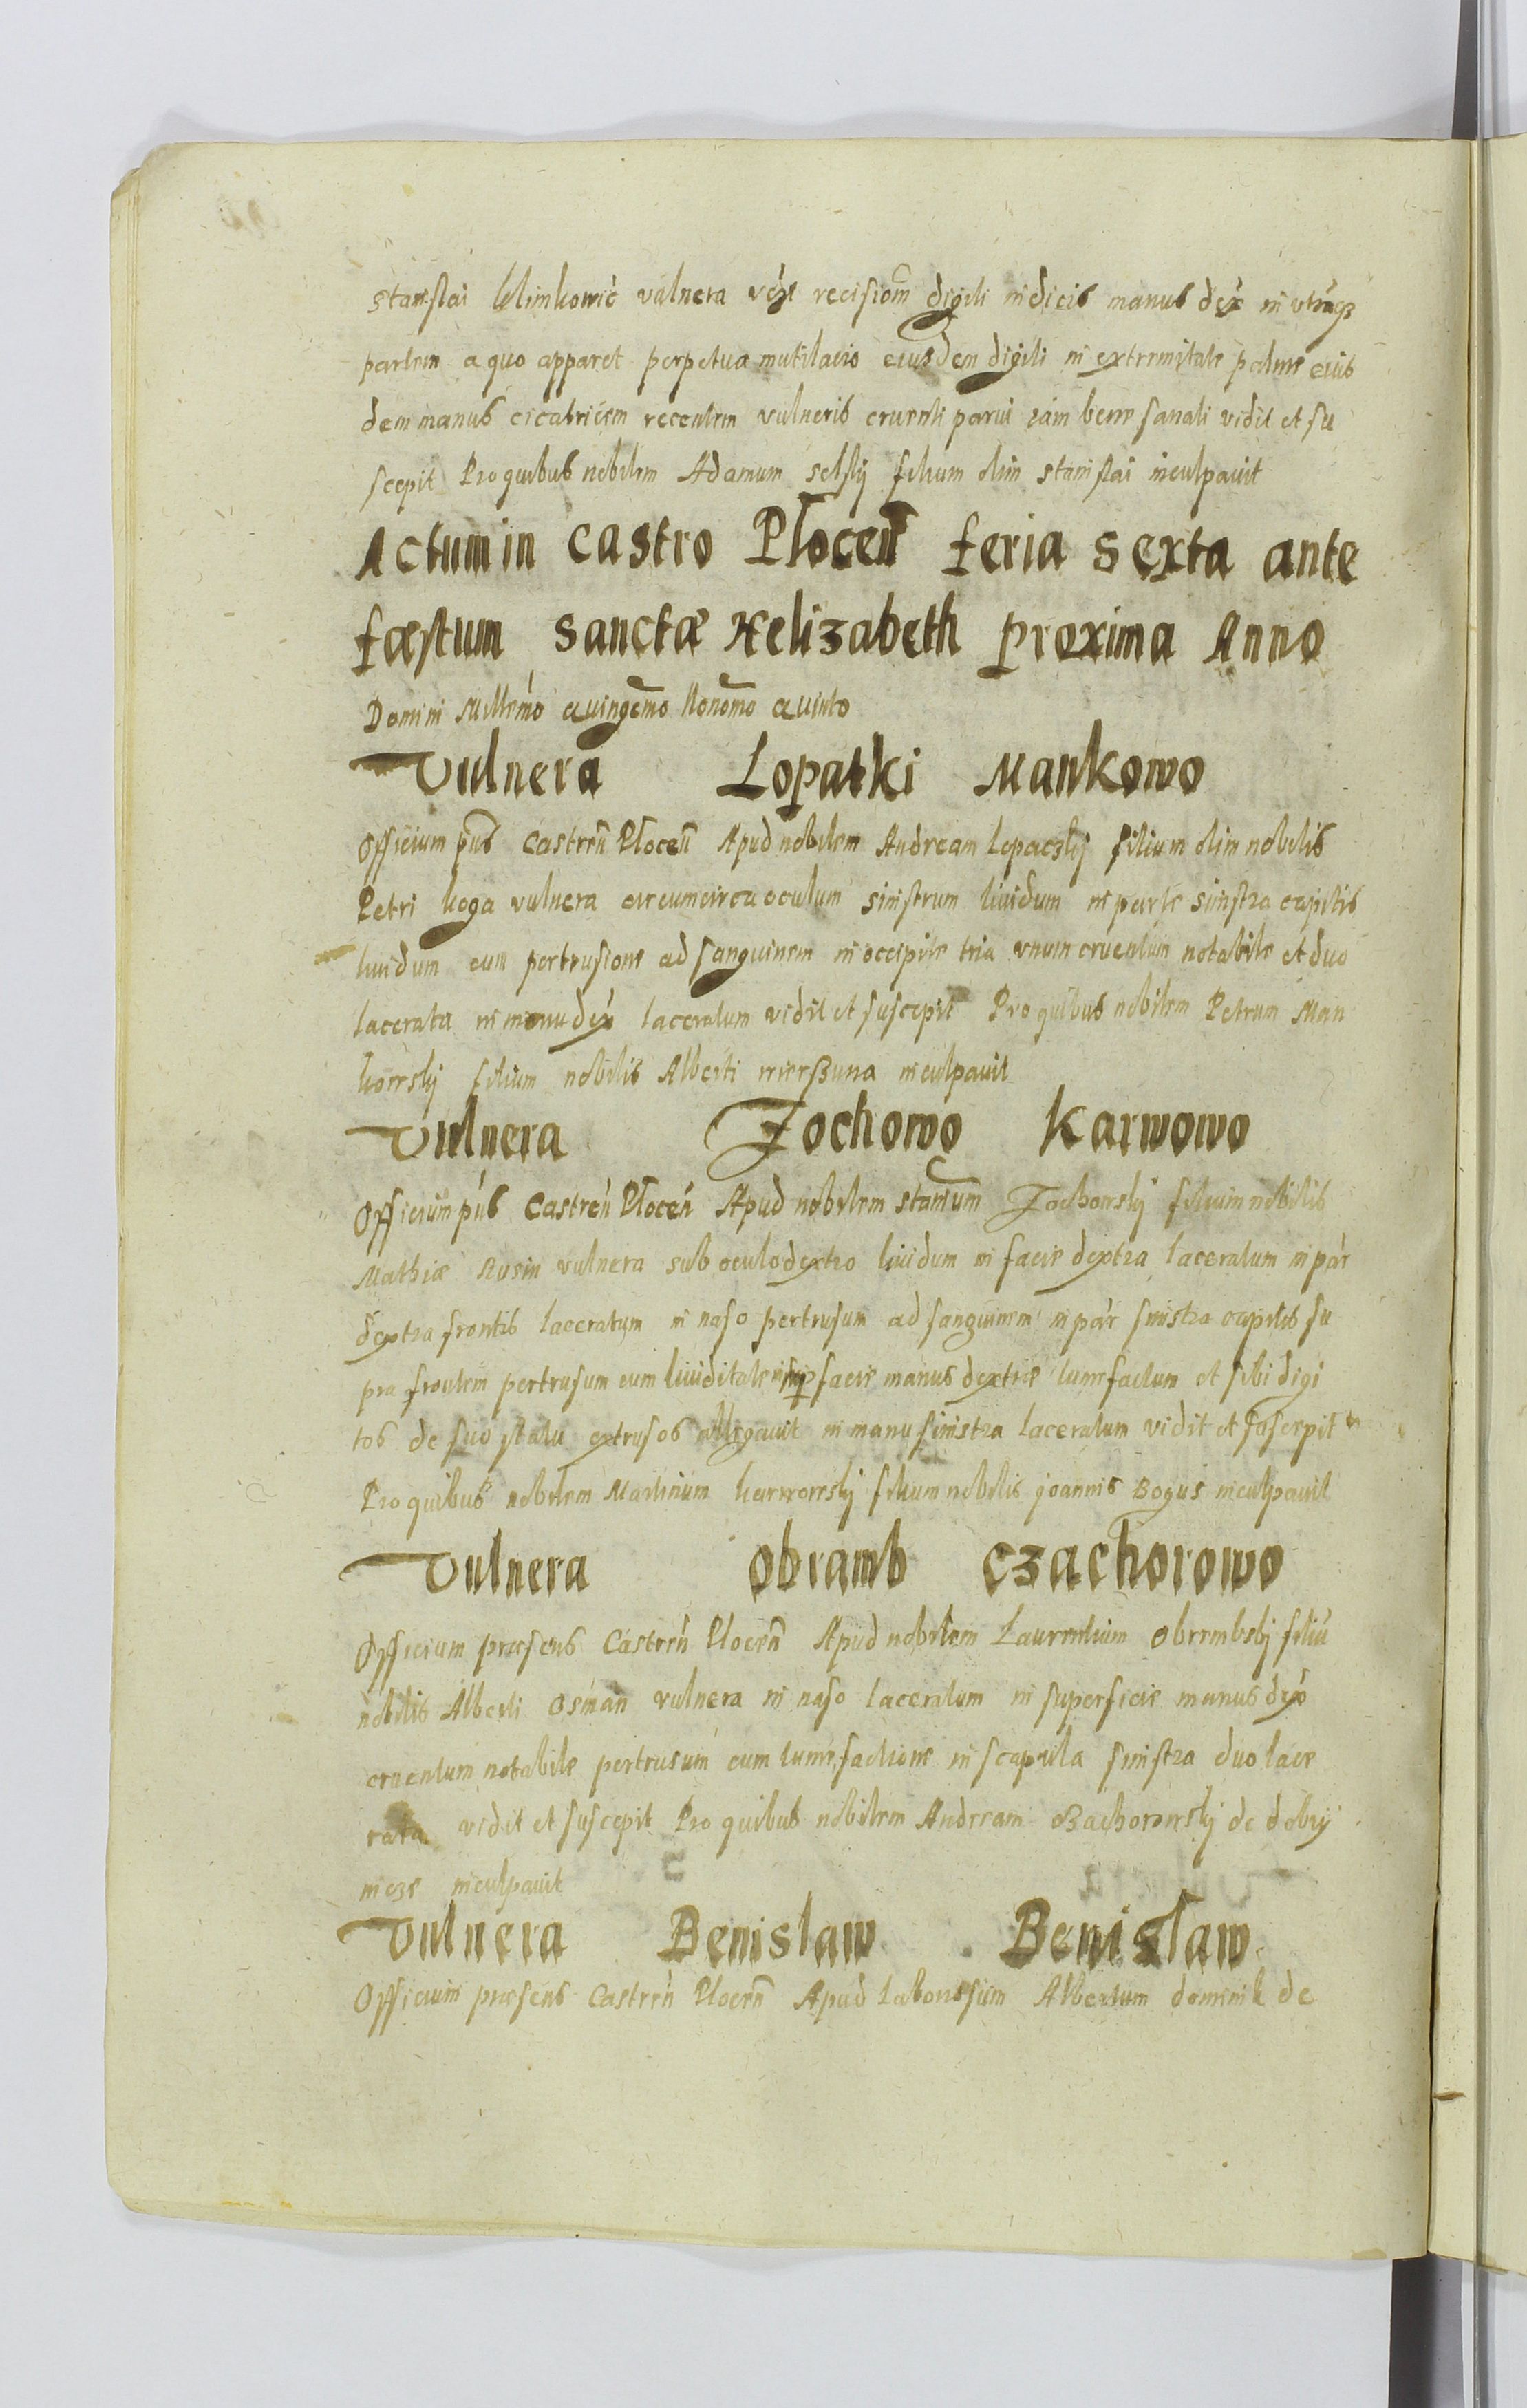 stanislai klimkowic vulnera vcze recisiom digiti indicis manus dex in vtramq3
partem a quo apparet perpetua mutilacio eiusdem digiti in extremitate palme eius
dem manus cicatricem recentem vulneris cruenti parui iam bene sanati vidit et su
scepit Pro quibus nobilem Adamum selskij filium olim stanislai inculpauit
Actum in Castro Płocen feria sexta ante
fæstum sanctæ Helizabeth proxima Anno
Domini Millemo quingemo Nonomo quinto
Vulnera Lopatki Mankowo
Officium pns Castren Płocen Apud nobilem Andream Lopaczkij filium olim nobilis
Petri koga vulnera circumcirca oculum sinistrum liuidum in parte sinistra capitis
liuidum cum pertrusione ad sanguinem in occipite tria vnum cruentum notabile et duo
lacerata in manu dex laceratum vidit et suscepit Pro quibus nobilem Petrum Man
kowskij filium nobilis Alberti inculpauit
Vulnera Zochowo Karwowo
Officium pns Castren Płocen Apud nobilem stanisum Zochowskij filium nobilis
Mathiæ Rusin vulnera sub oculo dextro liuidum in facie dextra laceratum in par
dextra frontis laceratum in naso pertrusum ad sanguinem in par sinistra capitis su
pra frontem pertrusum cum liuiditate in supfacie manus dextræ tumefactum et sibi digi
tos de suo statu extrusos allegauit in manu sinistra laceratum vidit et suscepit
Pro quibus nobilem Martinum karwowskij filium nobilis joannis Bogus inculpauit
Vulnera Obramb Czachorowo
Officium præsens Castren Płocen Apud nobilem Laurentium Obrembskij filiu
nobilis Alberti Osman vulnera in naso laceratum in superficie manus dex
cruentum notabile pertrusum cum tumefactione in scapula sinistra duo lace
rata vidit et suscepit Pro quibus nobilem Andream de dobrij
nicze inculpauit
Vulnera Benislaw Benisław
Officium præsens Castren Płocen Apud Laboriosum Albertum dominik de